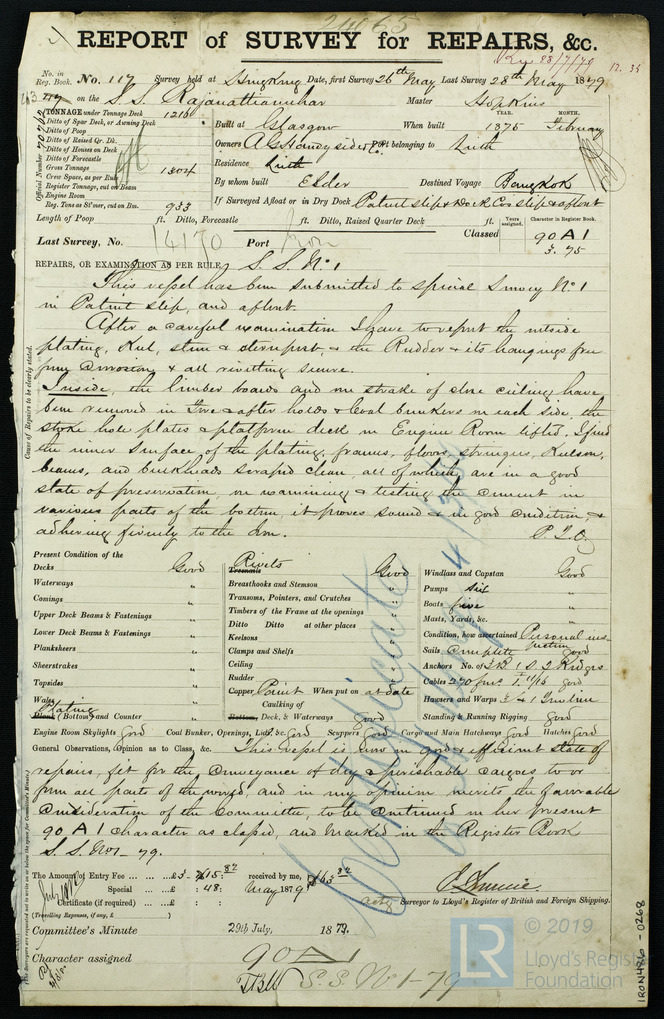 REPORT of SURVEY for REPAIRS, &c.
No. in Reg. Book. No. 117 Survey held at Hong Kong Date, first Survey 26th May Last Survey 28th May 1879
on the S.S. Rajanattianuhar Master Hopkins
TONNAGE under Tonnage Deck 1216
Ditto of Spar Deck, or Awning Deck
Ditto of Poop
Ditto of Raised Qr. Dk.
Ditto of Houses on Deck
Ditto of Forecastle
Gross Tonnage 1304
Crew Space, as per Rule
Register Tonnage, cut on Beam
Engine Room
Reg. Tons as St'mer, cut on Bm. 933
Official Number
YEAR. MONTH.
Built at Glasgow When built 1875 February
Owners A G Handyside & Co. Port belonging to Leith
Residence Leith
By whom built Elder Destined Voyage Bangkok
If Surveyed Afloat or in Dry Dock Patent slip & Dock Cos slip & afloat
Length of Poop ft. Ditto, Forecastle ft. Ditto, Raised Quarter Deck ft.
Years assigned. Character in Register Book.
Last Survey, No. 14170 Port Iron Classed 90 A 1
3. 75
REPAIRS, OR EXAMINATION AS PER RULE, S.S. No 1
This vessel has been submitted to special Survey No 1
in Patent slip, and afloat.
After a careful examination I have to report the outside
plating, Keel, stem & sternpost, & the Rudder & its hangings free
from corrosion & all rivetting secure.
Inside, the limber boards and one strake of close ceiling have
been removed in Fore & after holds & Coal bunkers on each side, the
stoke hole plates & platform deck in Engine Room lifted. I find
the inner surface of the plating, frames, floors, stringers, Keelson,
beams, and bulkheads scraped clean, all of which are in a good
state of preservation, on examining & testing the cement in
various parts of the bottom, it proves sound & in good condition, &
adhering firmly to the Iron. P.T.O.
Cause of Repairs to be clearly stated.
Present Condition of the
Decks Good
Waterways "
Comings "
Upper Deck Beams & Fastenings "
Lower Deck Beams & Fastenings "
Planksheers "
Sheerstrakes "
Topsides "
Wales "
Plating
Plank (Bottom) and Counter "
Rivets
Treenails Good
Breasthooks and Stemson "
Transoms, Pointers, and Crutches "
Timbers of the Frame at the openings "
Ditto Ditto at other places "
Keelsons "
Clamps and Shelfs "
Ceiling "
Rudder "
Copper Paint When put on at date
Caulking of
Bottom, Deck, & Waterways good
Windlass and Capstan Good
Pumps six "
Boats five "
Masts, Yards, &c. "
Condition, how ascertained Personal inspection
Sails Complete good
Anchors No. of 3 B. 1 S. 2 Kedges
Cables 270 fms 1 11/16 good
Hawsers and Warps
Standing & Running Rigging good
Engine Room Skylights good Coal Bunker, Openings, Lids, &c. good Scuppers good Cargo and Main Hatchways good Hatches good
General Observations, Opinion as to Class, &c. This vessel is now in good & efficient state of
repairs, fit for the conveyance of dry & perishable cargoes to or
from all parts of the world, and in my opinion merits the favorable
Consideration of the Committee, to be continued in her present
90 A 1 character as classed, and marked in the Register Book
S.S. No 1 - 79.
The Amount of Entry Fee ... £ received by me,
Special ... £ : 48: May 1879
Certificate (if required) ... £
(Travelling Expenses, if any, £ )
Surveyor to Lloyd's Register of British and Foreign Shipping.
Committee's Minute 29th July, 1879.
Character assigned 90 A 1
S.S. No 1-79
IRON486-0268
© 2019
LR Lloyd's Register
Foundation